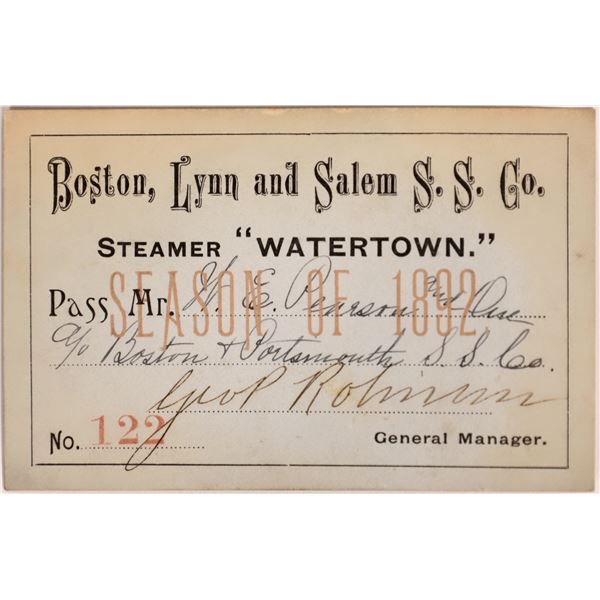 Boston, Lynn and Salem S. S. Co.
STEAMER "WATERTOWN."
SEASON OF 1892
Pass Mr. W. E. Pearson and One
c/o Boston & Portsmouth S. S. Co.
Geo P
No. 122
General Manager.